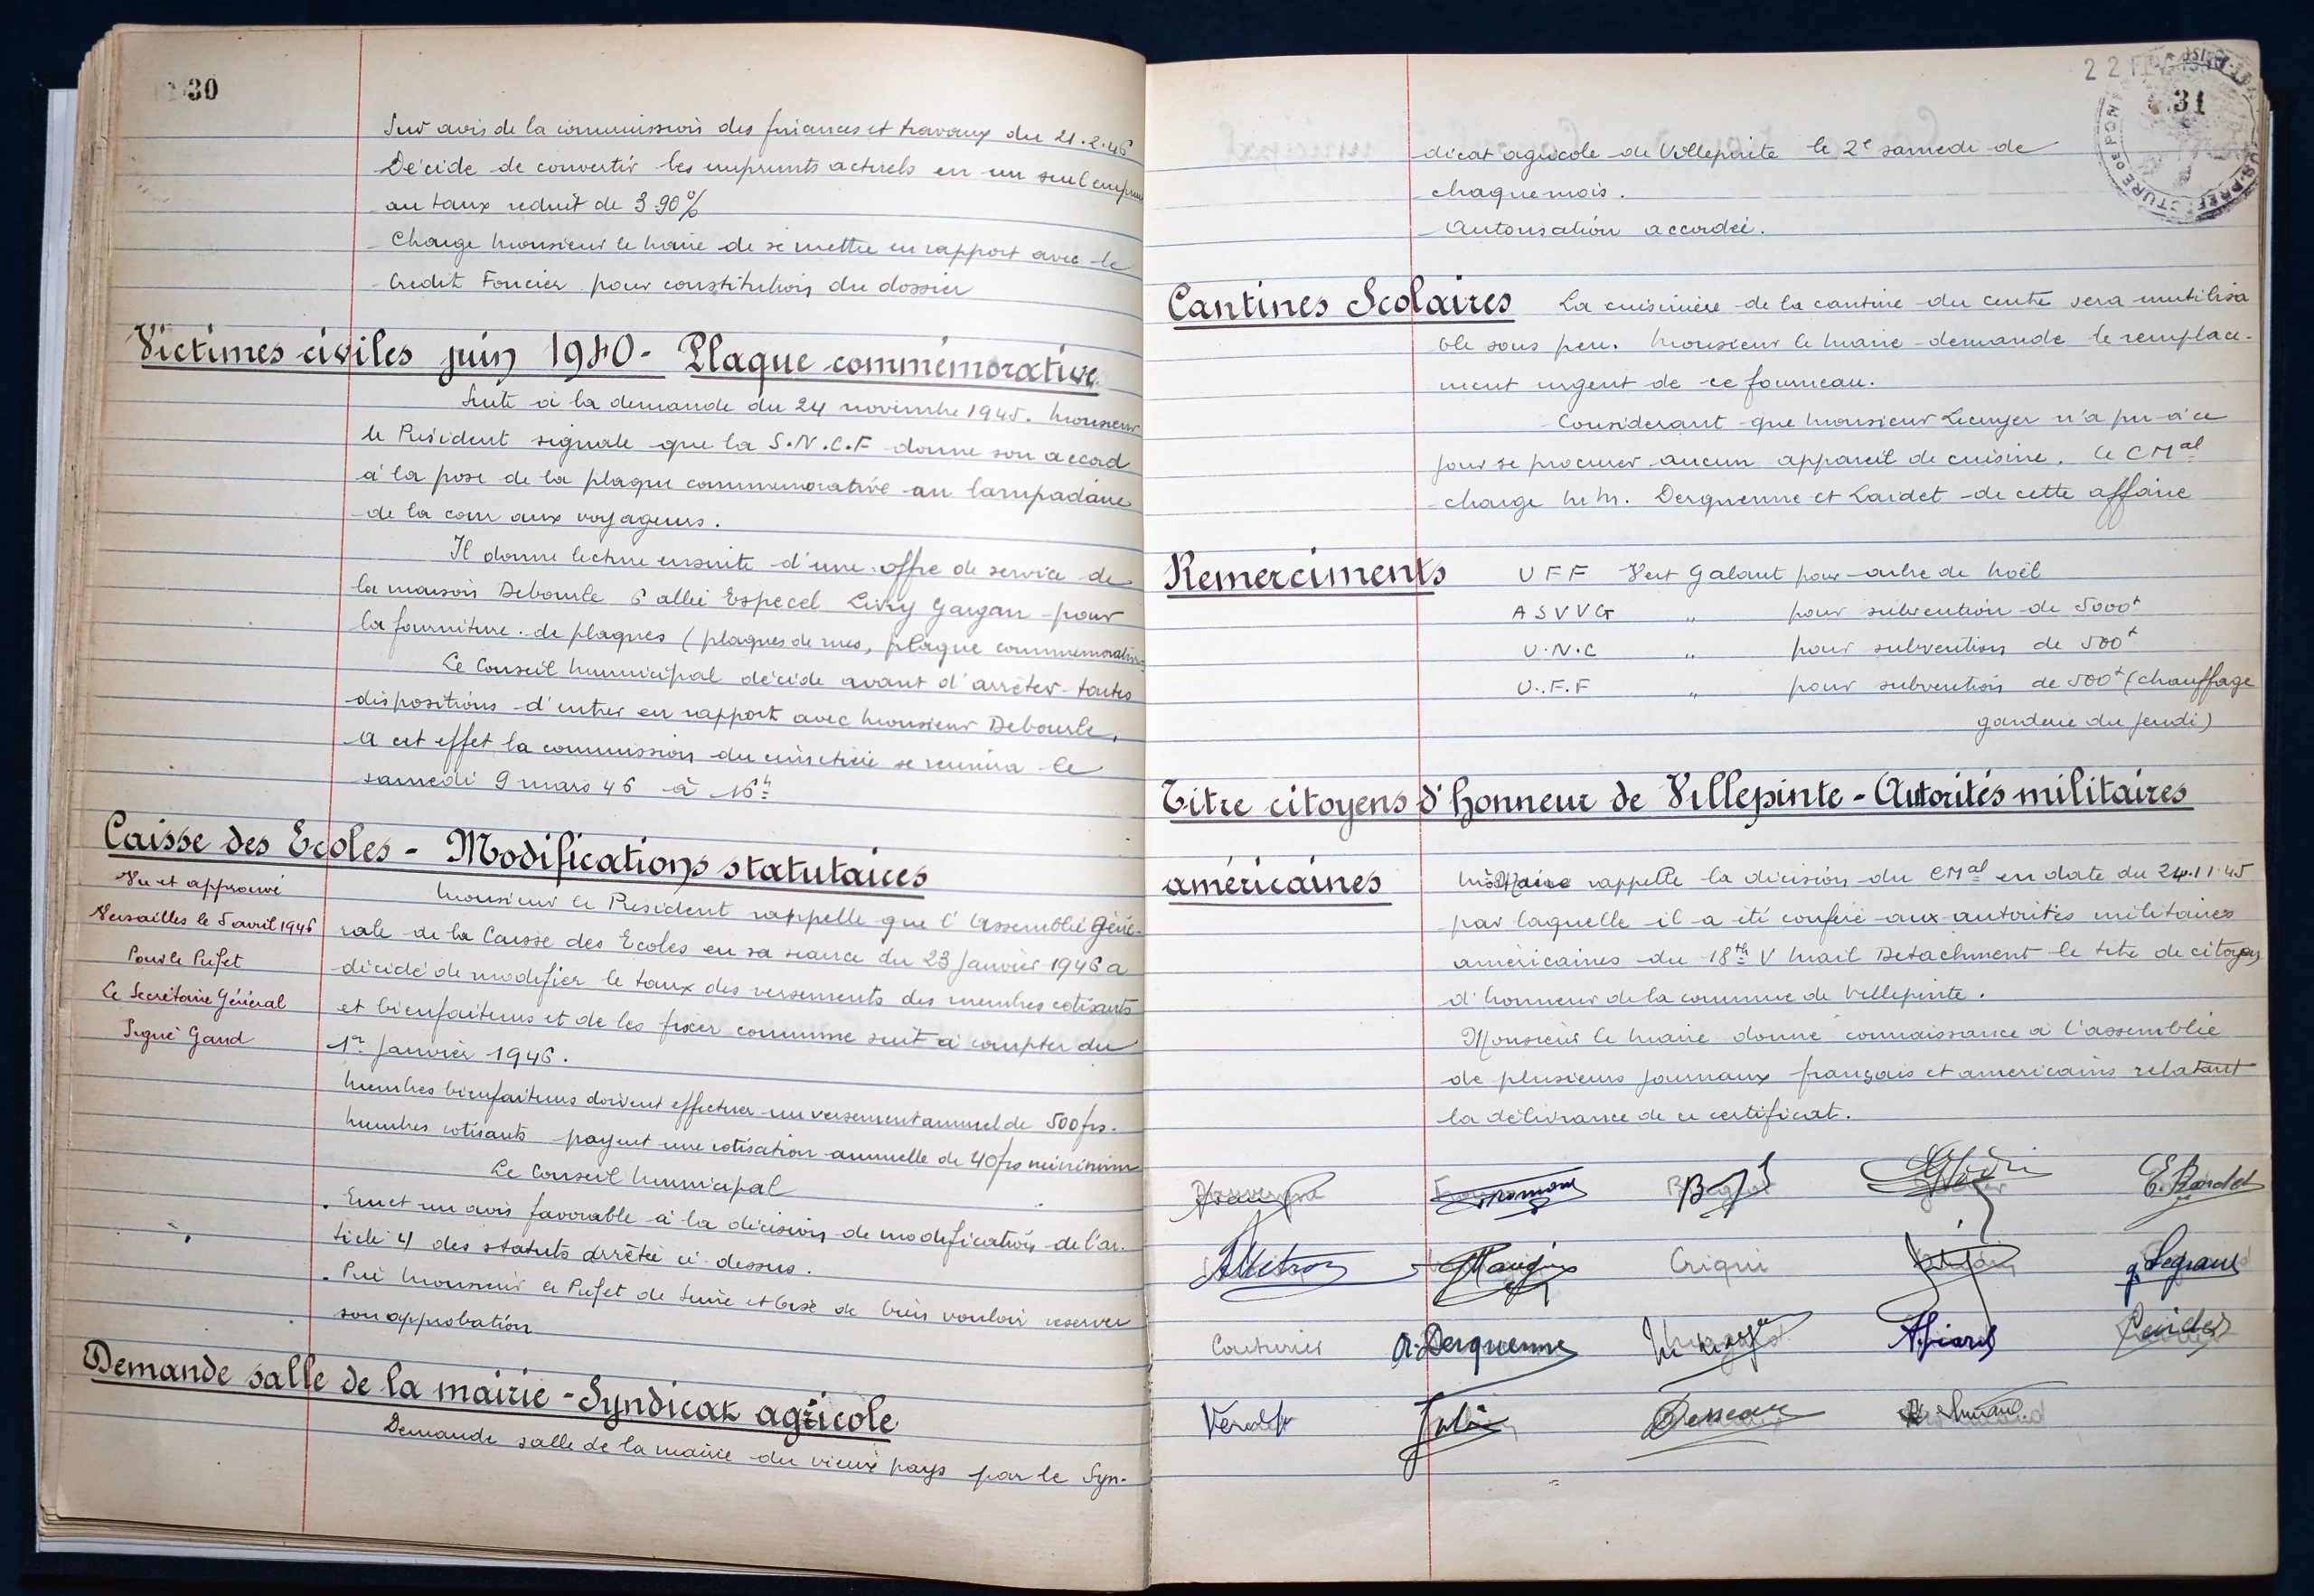 30
Sur avis de la commission des finances et travaux du 21.2.46
Décide de convertir les emprunts actuels en un seul emprunt
au taux reduit de 3.90%
Charge Monsieur le Maire de se mettre en rapport avec le
Credit Foncier pour constitution du dossier
Victimes civiles juin 1940 - Plaque commémorative
Suite à la demande du 24 novembre 1945. Monsieur
le Président signale que la S.N.C.F donne son accord
à la pose de la plaque commemorative au lampadaire
de la cour aux voyageurs.
Il donne lecture ensuite d'une offre de service de
la maison Debourle 6 allée Especel Livry Gargan pour
la fourniture de plaques (plaques de rues, plaque commemorative
Le Conseil Municipal décide avant d'arrêter toutes
dispositions d'entrer en rapport avec Monsieur Debourle,
A cet effet la commission du cimetière se reunira le
samedi 9 mars 46 à 16h
Caisse des Ecoles - Modifications statutaires
Vu et approuvé
Versailles le 5 avril 1946
Pour le Prefet
Le Secrétaire Général
Signé Gand
Monsieur le President rappelle que l'Assemblée Géné-
rale de la Caisse des Ecoles en sa seance du 23 Janvier 1946 a
décidé de modifier le taux des versements des membres cotisants
et bienfaiteurs et de les fixer comme suit à compter du
1er Janvier 1946.
Membres bienfaiteurs doivent effectuer un versement annuel de 500 frs.
Membres cotisants payent une cotisation annuelle de 40 frs minimum
Le Conseil Municipal
. Emet un avis favorable à la décision de modification de l'ar-
ticle 4 des statuts arrêtée ci-dessus.
. Prie Monsieur le Prefet de Seine et Oise de bien vouloir reserver
son approbation
Demande salle de la mairie - Syndicat agricole
Demande salle de la mairie du vieux pays par le Syn-
31
dicat agricole de Villepinte le 2e samedi de
chaque mois.
Autorisation accordée.
Cantines Scolaires La cuisinière de la cantine du centre sera inutilisa
ble sous peu. Monsieur le Maire demande le remplace-
ment urgent de ce fourneau.
Considerant que Monsieur Lecuyer n'a pu à ce
jour se procurer aucun appareil de cuisine. Le CMal
charge M.M. Derquenne et Lardet de cette affaire
Remerciments
UFF Vert Galant pour arbre de Noël
ASVVG " pour subvention de 5000f
U.N.C " pour subvention de 500f
U.F.F " pour subvention de 500f (chauffage
garderie du jeudi)
Titre citoyens d'honneur de Villepinte - Autorités militaires
américaines
Mr le Maire rappelle la décision du CMal en date du 24.11.45
par laquelle il a été conféré aux autorités militaires
américaines du 18th V Mail Detachment le titre de citoyens
d'honneur de la commune de Villepinte.
Monsieur le Maire donne connaissance à l'assemblée
de plusieurs journaux français et americains relatant
la délivrance de ce certificat.
E. Bardet
Mangin Criqui Legrand
Couturier A. Derquenne